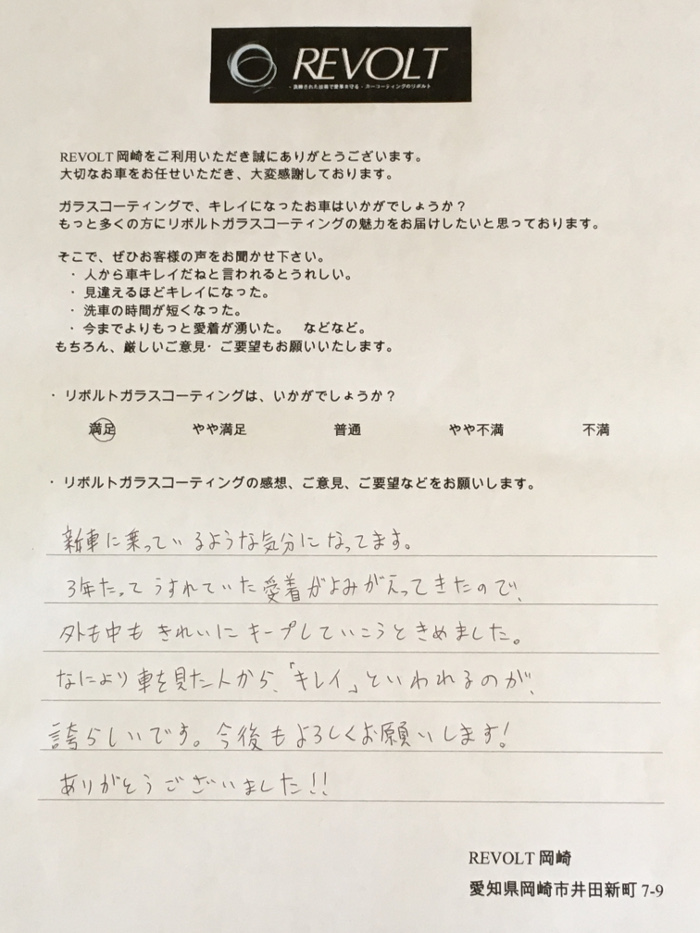 REVOLT
・洗練された技術で愛車を守る・カーコーティングのリボルト
REVOLT岡崎をご利用いただき誠にありがとうございます。
大切なお車をお任せいただき、大変感謝しております。
ガラスコーティングで、キレイになったお車はいかがでしょうか？
もっと多くの方にリボルトガラスコーティングの魅力をお届けしたいと思っております。
そこで、ぜひお客様の声をお聞かせ下さい。
・ 人から車キレイだねと言われるとうれしい。
・ 見違えるほどキレイになった。
・ 洗車の時間が短くなった。
・ 今までよりもっと愛着が湧いた。 などなど。
もちろん、厳しいご意見・ご要望もお願いいたします。
・ リボルトガラスコーティングは、いかがでしょうか？
満足 やや満足 普通 やや不満 不満
・ リボルトガラスコーティングの感想、ご意見、ご要望などをお願いします。
新車に乗っているような気分になってます。
3年たって うすれていた愛着がよみがえってきたので、
外も中も きれいにキープしていこうときめました。
なにより車を見た人から、「キレイ」といわれるのが、
誇らしいです。今後もよろしくお願いします!
ありがとうございました!!
REVOLT 岡崎
愛知県岡崎市井田新町 7-9